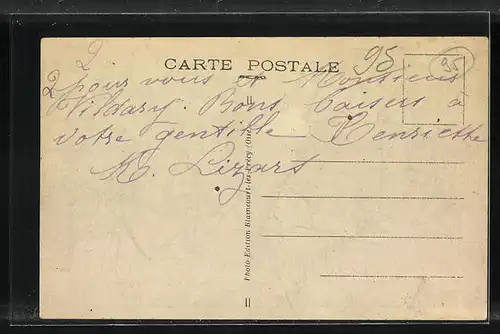 2
95
95
CARTE POSTALE
2 pour vous et Monsieur
Vildary. Bons baisers à
votre gentille Henriette
M. Lizart
Photo-Edition Blaincourt-les-Précy (Oise)
II